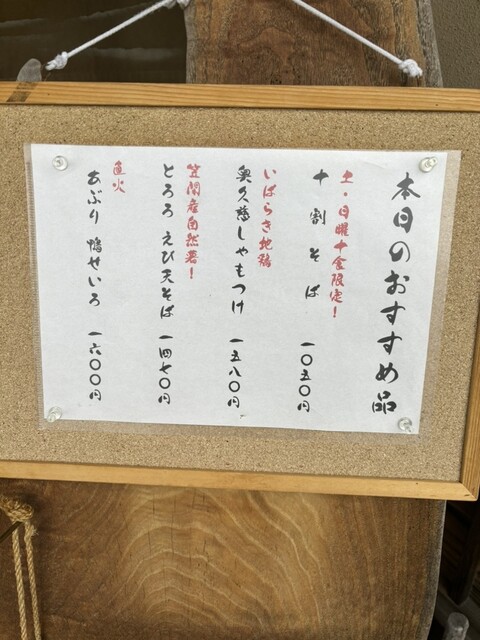 本日のおすすめ品
土・日曜十食限定!
十割そば 一〇五〇円
いばらき地鶏
奥久慈しゃもつけ 一五八〇円
笠間産自然薯!
とろろ えび天そば 一四七〇円
直火
あぶり 鴨せいろ 一六〇〇円